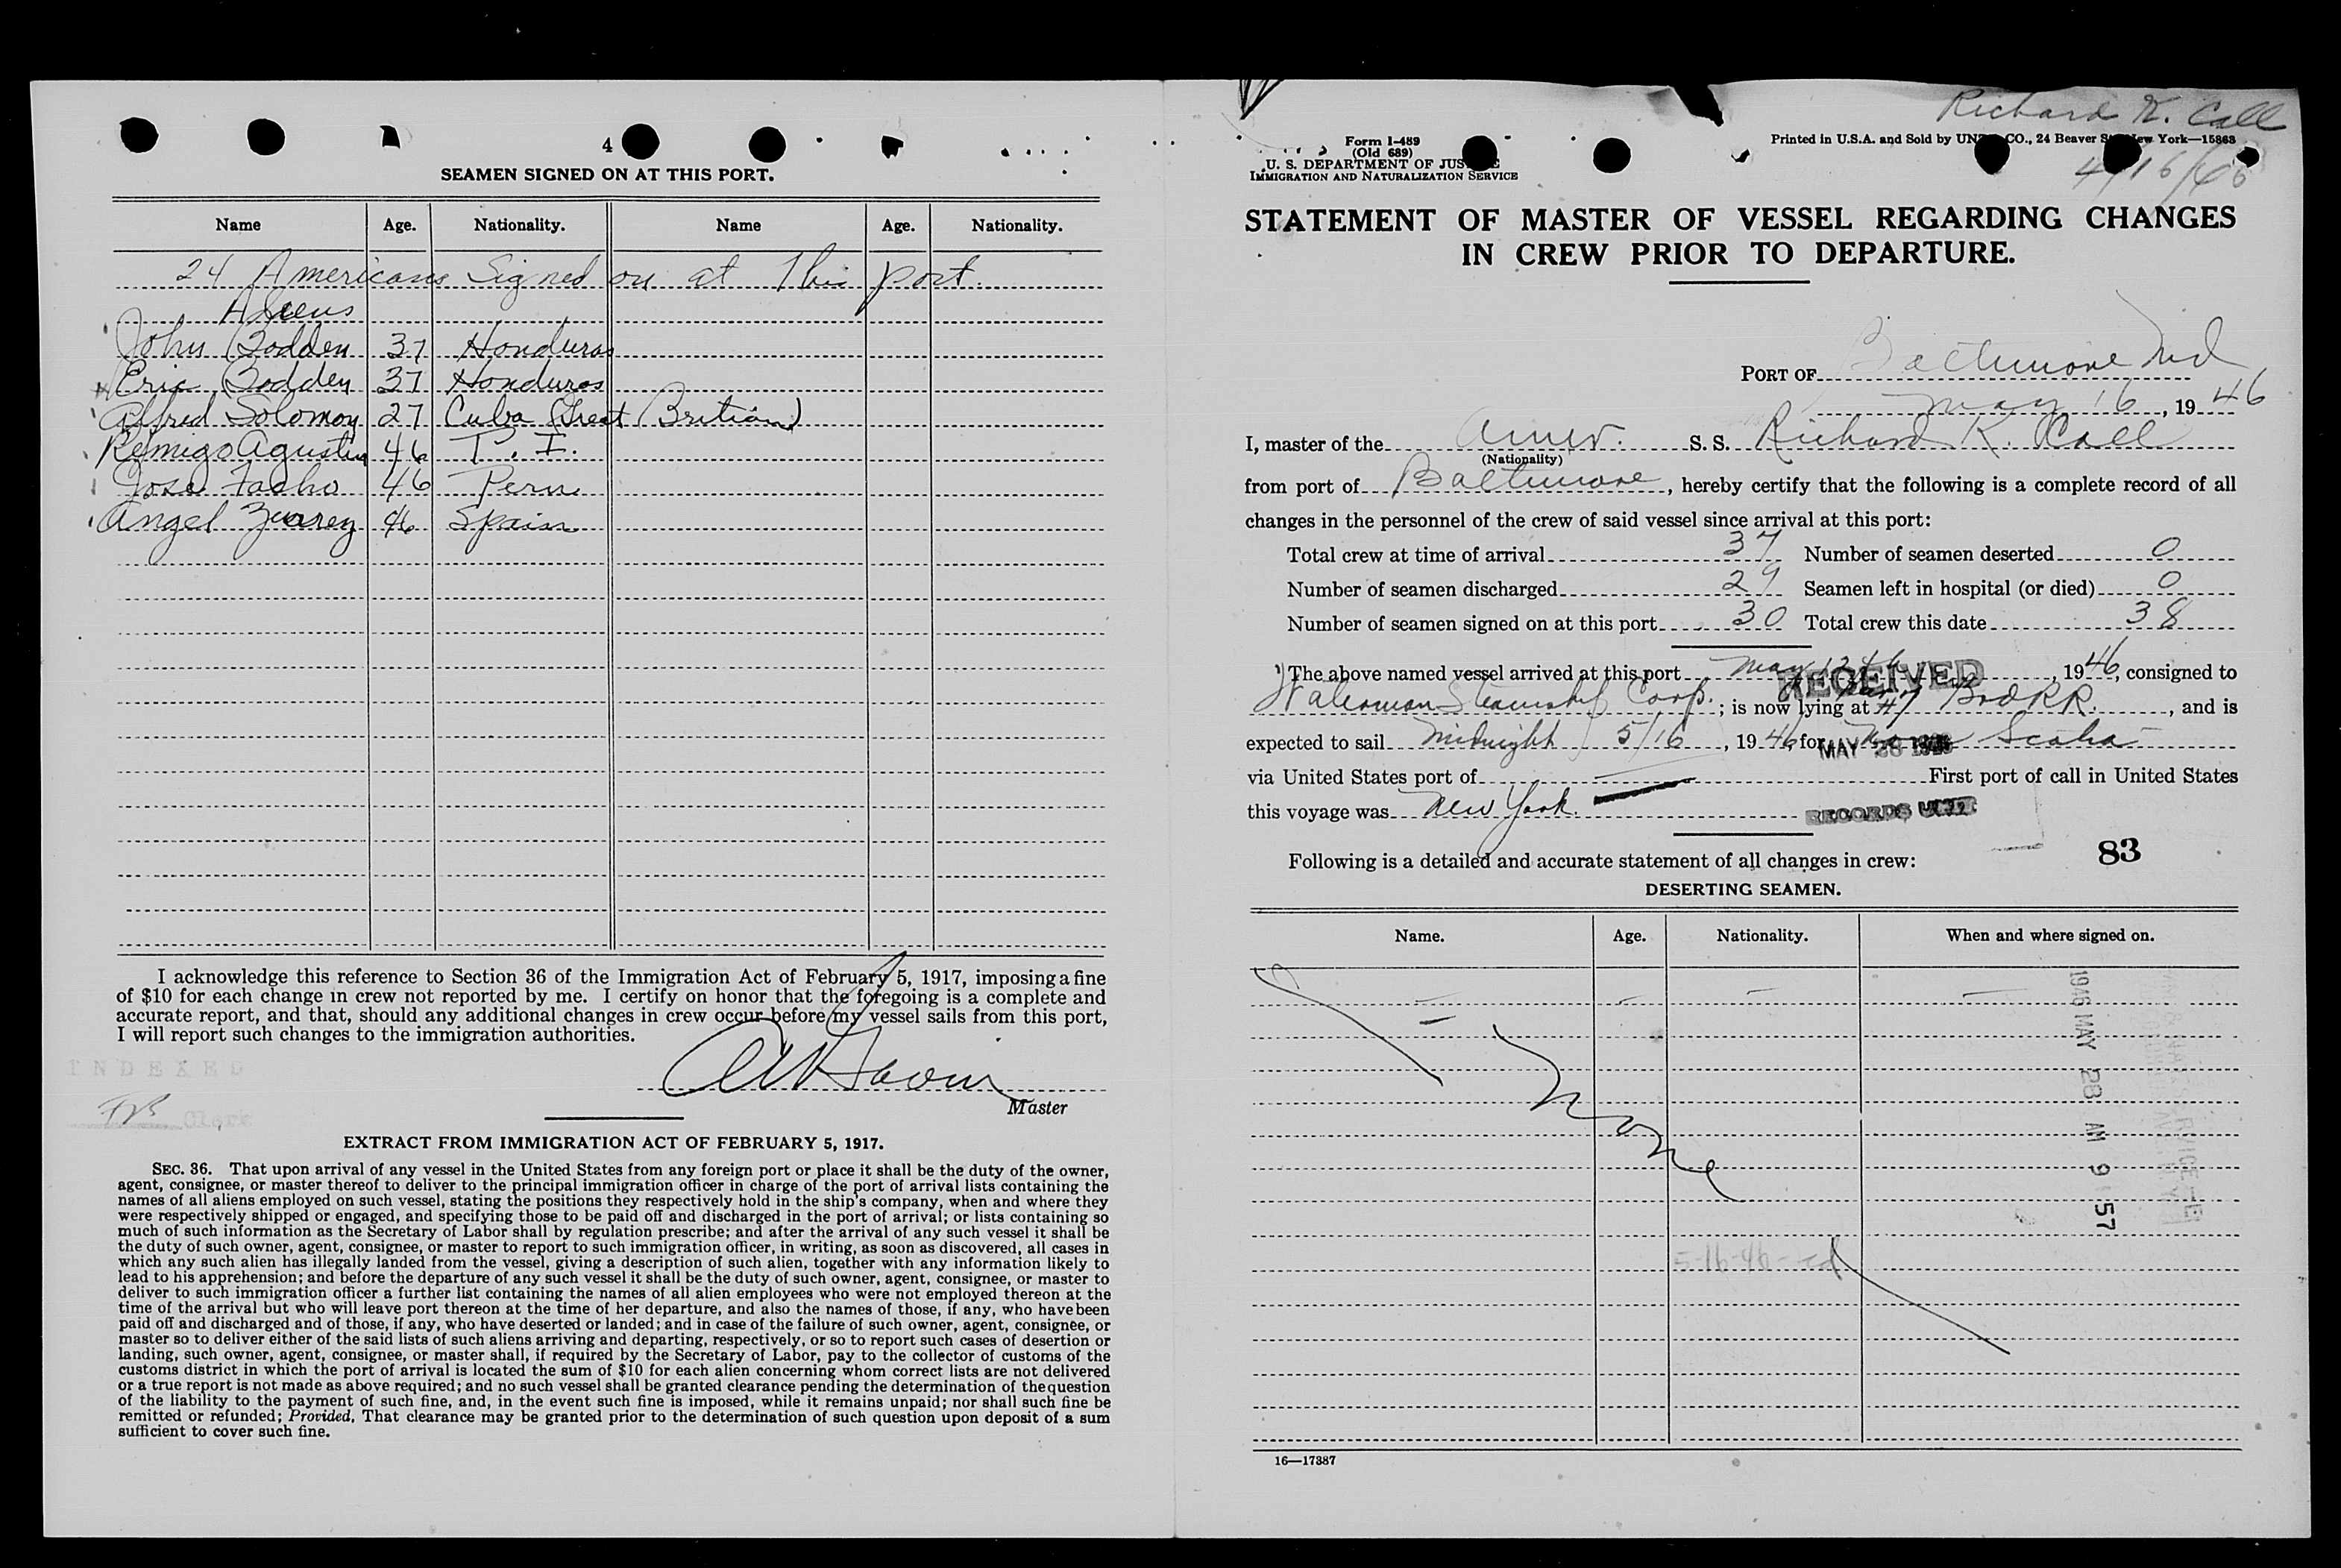 4
SEAMEN SIGNED ON AT THIS PORT.
Name Age. Nationality. Name Age. Nationality.
24 Americans Signed on at This port.
Aliens
John Bodden 37 Honduras
Eric Bodden 37 Honduras
Alfred Solomon 27 Cuba (Great Britian)
Remigo Agustin 46 P. I.
Jose Facho 46 Peru
Angel Zuarez 46 Spain
I acknowledge this reference to Section 36 of the Immigration Act of February 5, 1917, imposing a fine
of $10 for each change in crew not reported by me. I certify on honor that the foregoing is a complete and
accurate report, and that, should any additional changes in crew occur before my vessel sails from this port,
I will report such changes to the immigration authorities.
INDEXED
Clerk
Master
EXTRACT FROM IMMIGRATION ACT OF FEBRUARY 5, 1917.
SEC. 36. That upon arrival of any vessel in the United States from any foreign port or place it shall be the duty of the owner,
agent, consignee, or master thereof to deliver to the principal immigration officer in charge of the port of arrival lists containing the
names of all aliens employed on such vessel, stating the positions they respectively hold in the ship's company, when and where they
were respectively shipped or engaged, and specifying those to be paid off and discharged in the port of arrival; or lists containing so
much of such information as the Secretary of Labor shall by regulation prescribe; and after the arrival of any such vessel it shall be
the duty of such owner, agent, consignee, or master to report to such immigration officer, in writing, as soon as discovered, all cases in
which any such alien has illegally landed from the vessel, giving a description of such alien, together with any information likely to
lead to his apprehension; and before the departure of any such vessel it shall be the duty of such owner, agent, consignee, or master to
deliver to such immigration officer a further list containing the names of all alien employees who were not employed thereon at the
time of the arrival but who will leave port thereon at the time of her departure, and also the names of those, if any, who have been
paid off and discharged and of those, if any, who have deserted or landed; and in case of the failure of such owner, agent, consignee, or
master so to deliver either of the said lists of such aliens arriving and departing, respectively, or so to report such cases of desertion or
landing, such owner, agent, consignee, or master shall, if required by the Secretary of Labor, pay to the collector of customs of the
customs district in which the port of arrival is located the sum of $10 for each alien concerning whom correct lists are not delivered
or a true report is not made as above required; and no such vessel shall be granted clearance pending the determination of the question
of the liability to the payment of such fine, and, in the event such fine is imposed, while it remains unpaid; nor shall such fine be
remitted or refunded; Provided, That clearance may be granted prior to the determination of such question upon deposit of a sum
sufficient to cover such fine.
Richard K. Call
Form I-489
(Old 689)
U. S. DEPARTMENT OF JUSTICE
IMMIGRATION AND NATURALIZATION SERVICE
Printed in U.S.A. and Sold by CO., 24 Beaver St., New York—15863
STATEMENT OF MASTER OF VESSEL REGARDING CHANGES
IN CREW PRIOR TO DEPARTURE.
PORT OF Baltimore Md
May 16, 1946
I, master of the Amer. S. S. Richard K. Call
(Nationality)
from port of Baltimore, hereby certify that the following is a complete record of all
changes in the personnel of the crew of said vessel since arrival at this port:
Total crew at time of arrival 37 Number of seamen deserted 0
Number of seamen discharged 29 Seamen left in hospital (or died) 0
Number of seamen signed on at this port 30 Total crew this date 38
The above named vessel arrived at this port May 12th, 1946, consigned to
RECEIVED
Waterman Steamship Corp.; is now lying at #7 B&O RR., and is
expected to sail Midnight 5/16, 1946 for Nova Scotia
MAY 28 1946
via United States port of First port of call in United States
this voyage was New York.
RECORDS UNIT
83
Following is a detailed and accurate statement of all changes in crew:
DESERTING SEAMEN.
Name. Age. Nationality. When and where signed on.
None
1946 MAY 28 AM 9 57
5-16-46
16—17387